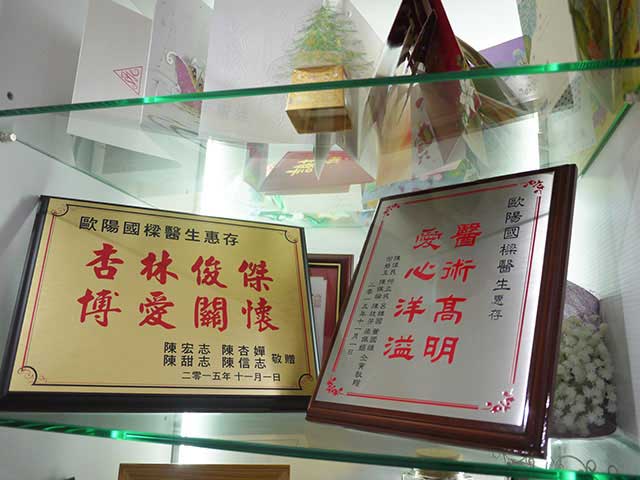 歐陽國樑醫生惠存
杏林俊傑
博愛關懷
陳宏志 陳杏嬋
陳甜志 陳信志 敬贈
二零一五年十一月一日
歐陽國樑醫生惠存
醫術高明
愛心洋溢
二零一五年十一月一日